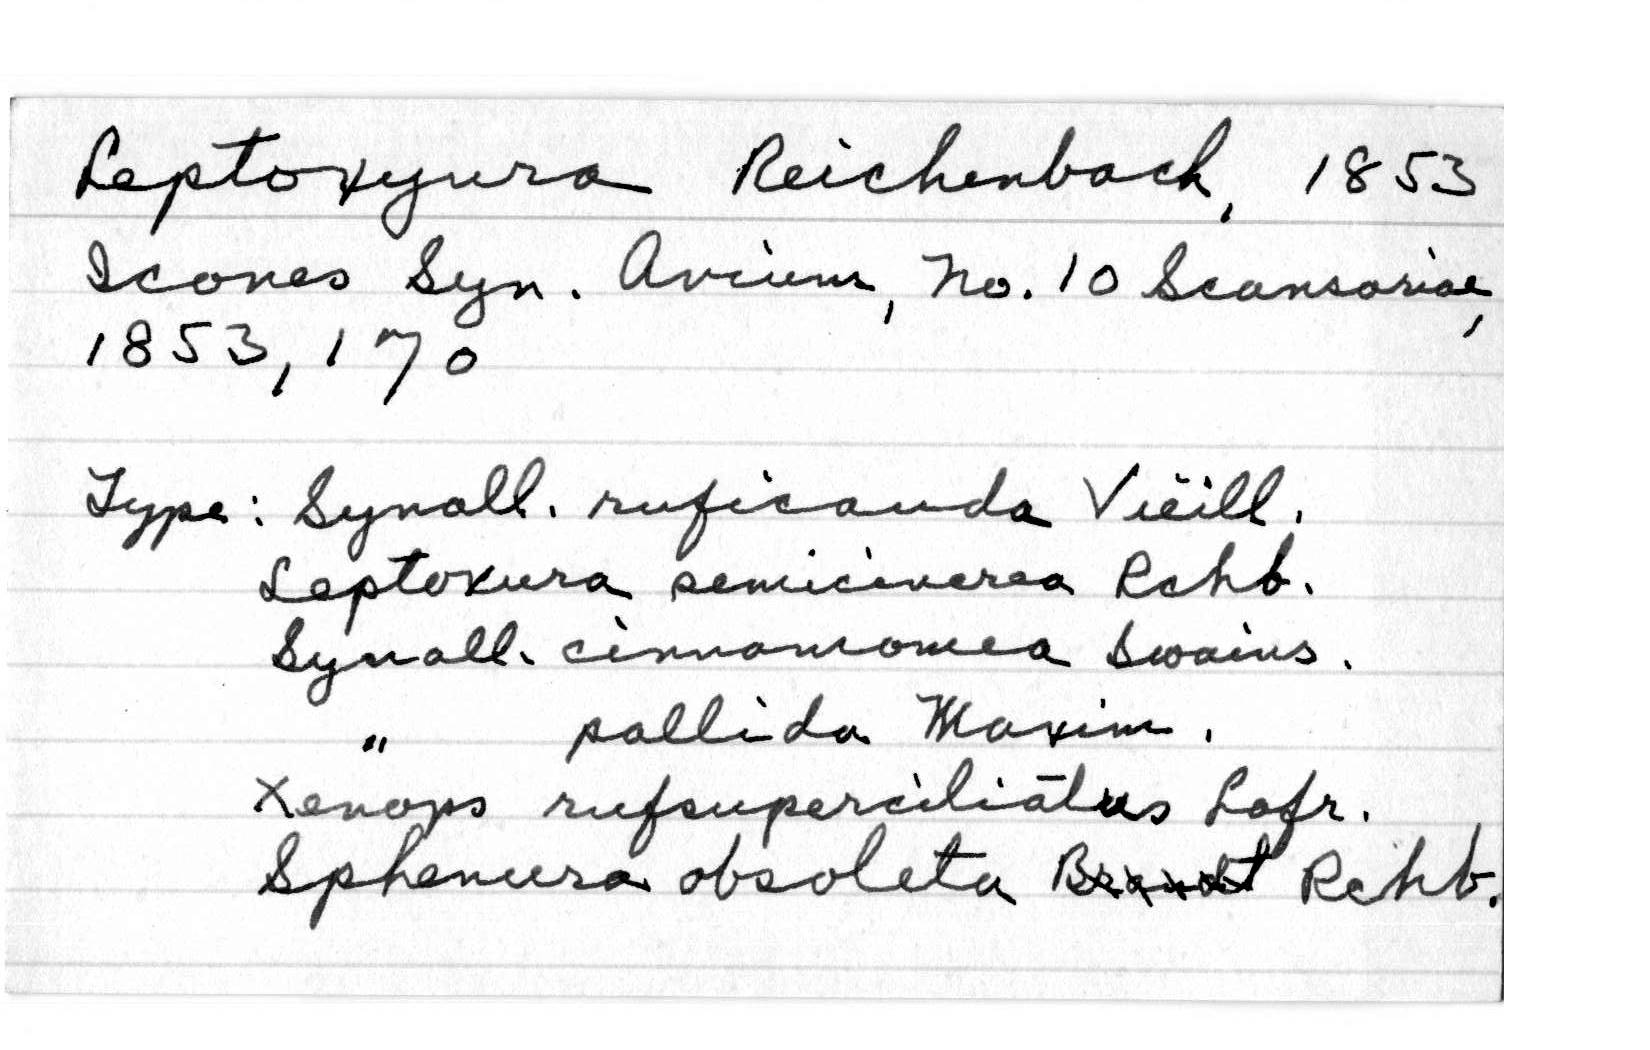 Leptoxyura Reichenbach, 1853
Icones Syn. Avium, No. 10 Scansoriae,
1853, 170
Type: Synall. ruficauda Vieill.
Leptoxura semicinerea Rchb.
Synall. cinnamomea Swains.
" pallida Maxim.
Xenops rufsuperciliātus Lafr.
Sphenura obsoleta Brandt Rchb.